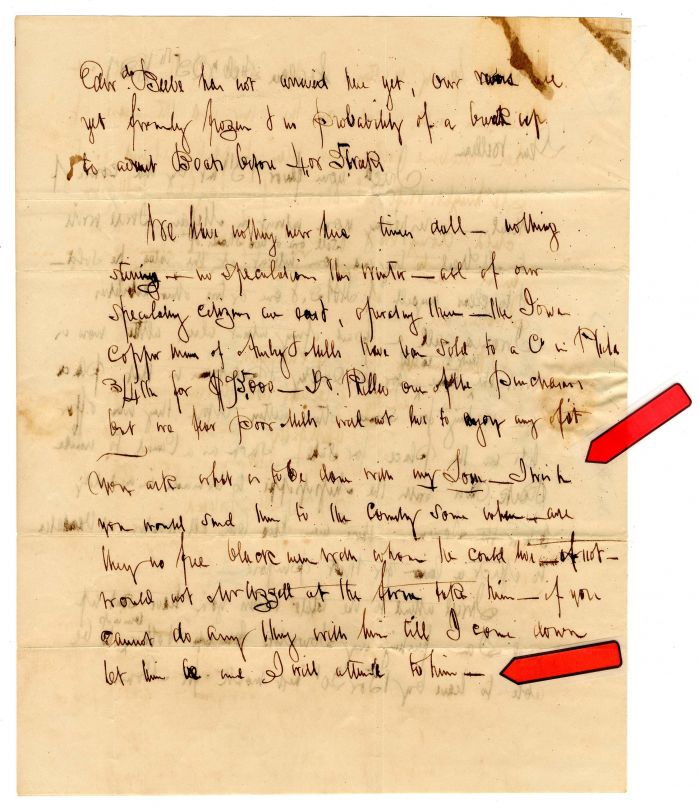 Edwd Beebe has not arrived here yet, our rivers are
yet firmly frozen & no probability of a break up
to admit Boats before 4, or 5 week
We have nothing new here times dull — nothing
stirring — no speculations this winter — all of our
speculating citizens are east, operating there — the Iowa
Copper mine of & Mills have been sold to a Co in Phila
3/4th for $15,000 — Dr. one of the Purchasers
but we fear Poor Mills will not live to enjoy any of it
You ask what is to be done with my Tom — I wish
you would send him to the Country some where — are
they no free black men with whom he could live — if not —
would not Mr at the farm take him — if you
cannot do any thing with him till I come down
let him be and I will attend to him —